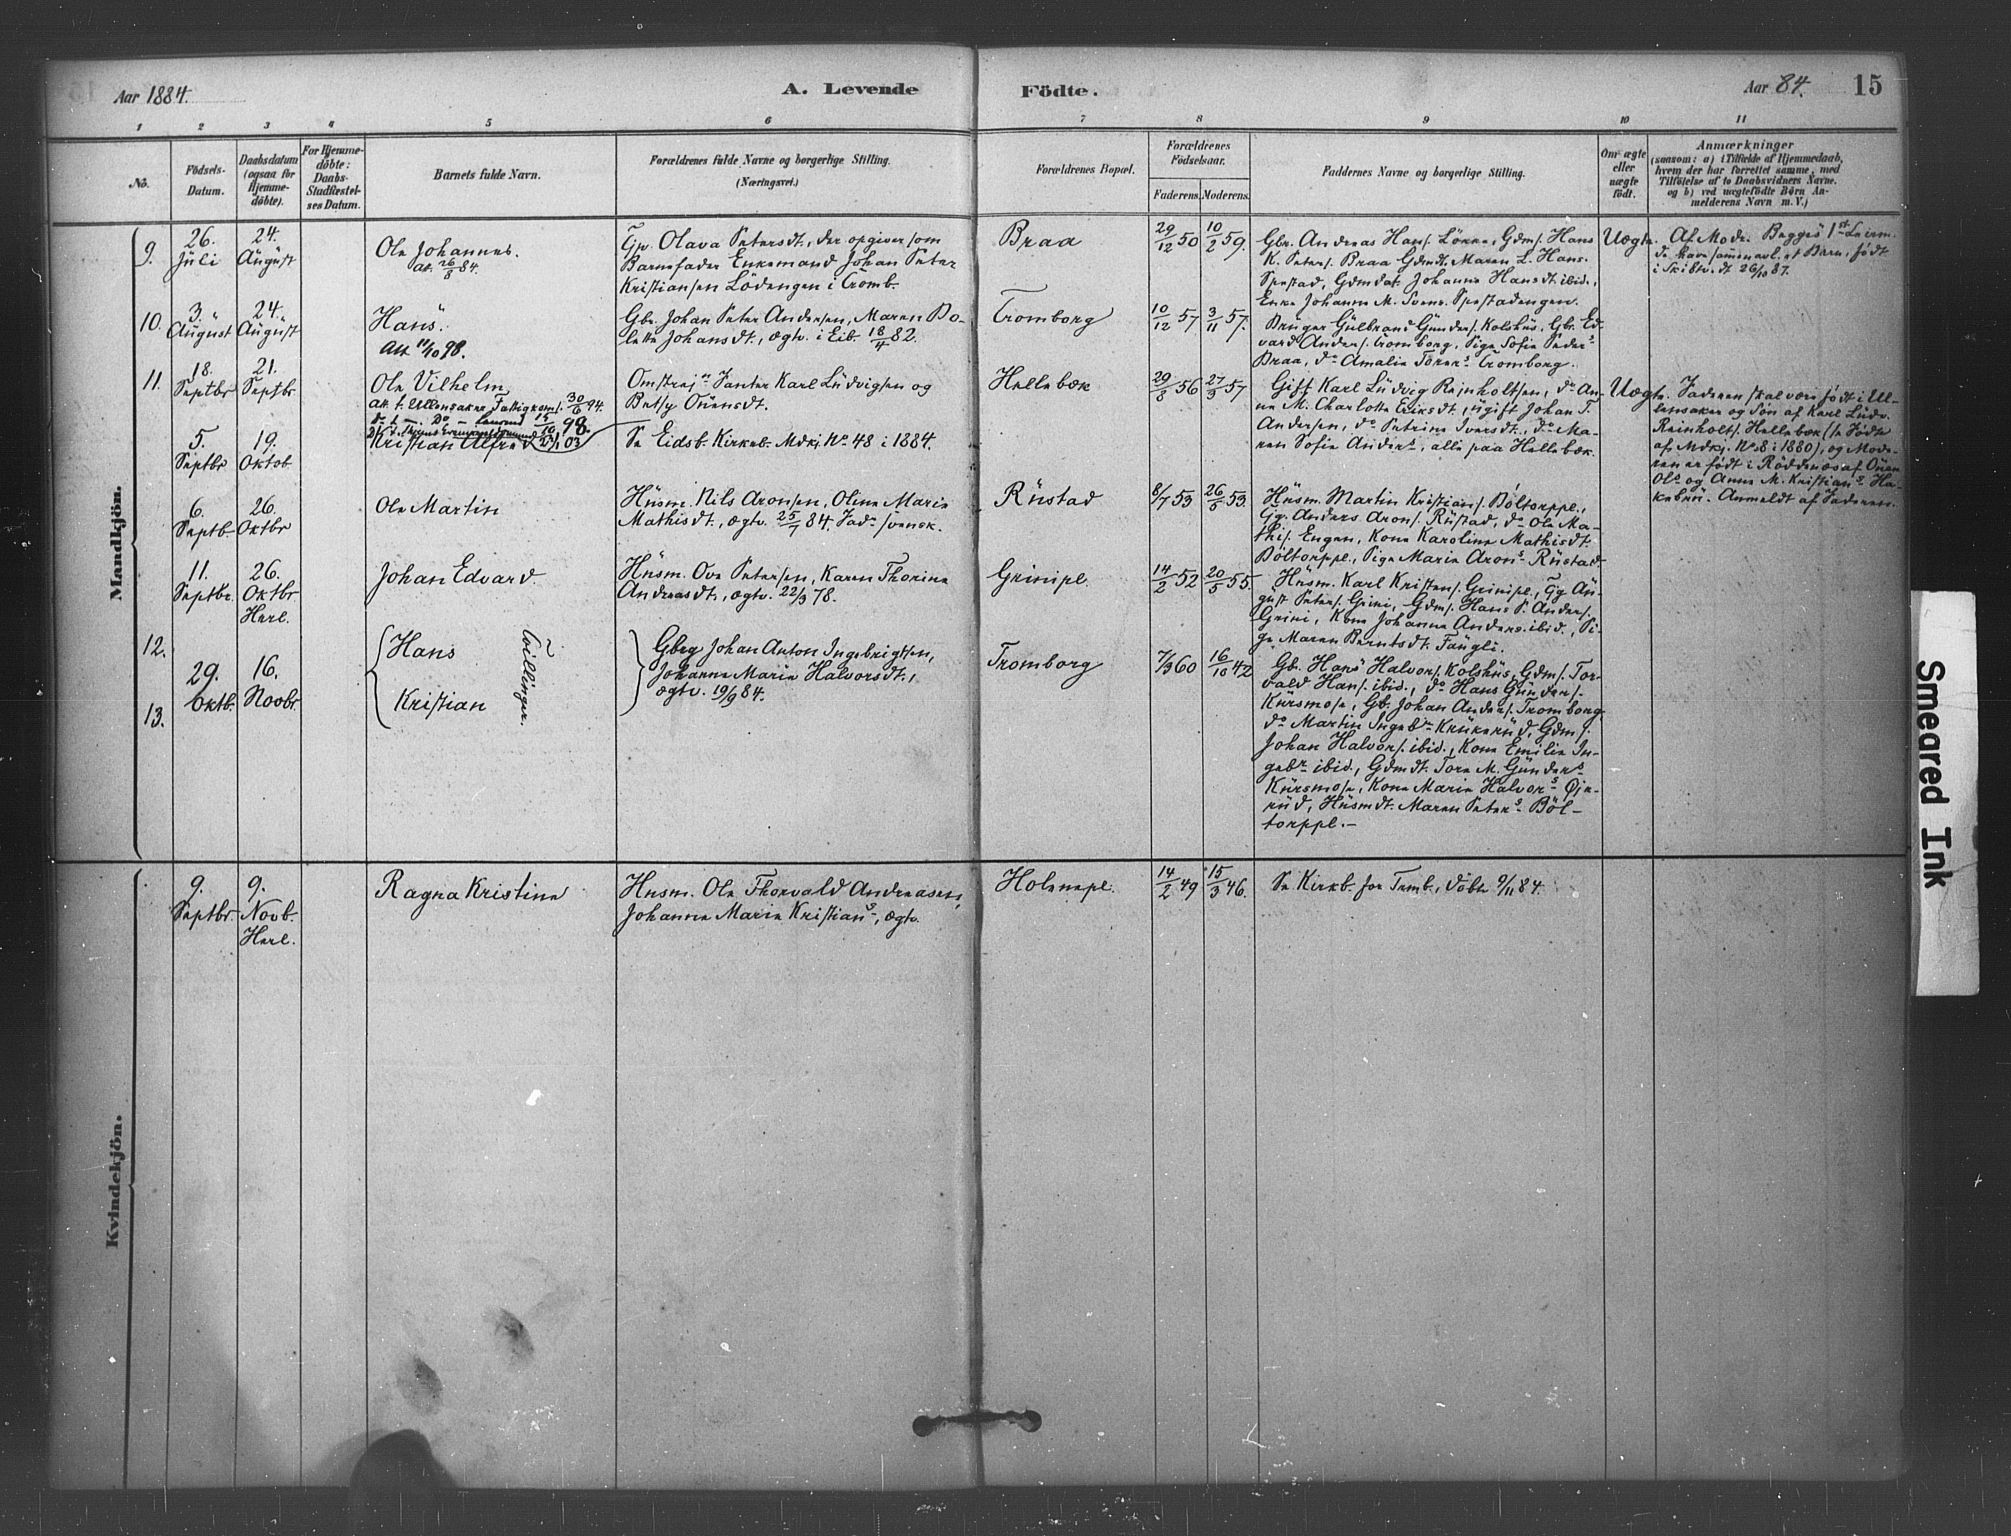 Aar 1884.
A. Levende Födte.
Aar 84.
15
1 2 3 4 5 6 7 8 9 10 11
No.
Födsels-
Datum.
Daabsdatum
(ogsaa for
Hjemme-
döbte).
For Hjemme-
döbte:
Daabs-
Stadfæstel-
ses Datum.
Barnets fulde Navn.
Forældrenes fulde Navne og borgerlige Stilling.
(Næringsvei.)
Forældrenes Bopæl.
Forældrenes
Födselsaar.
Faderens. Moderens.
Faddernes Navne og borgerlige Stilling.
Om ægte
eller
uægte
födt.
Anmærkninger
(saasom: a) i Tilfælde af Hjemmedaab,
hvem der har forrettet samme, med
Tilföielse af to Daabsvidners Navne.
og b) ved uægtefödte Börn An-
melderens Navn m. V.)
Mandkjön.
9.
26.
Juli
24.
August
Ole Johannes.
Att. 26/8 84.
Gp. Olava Petersdt., der opgiver som
Barnefader Enkemand Johan Peter
Kristiansen Lödengen i Tromb.
Braa
29/12 50
10/2 59.
Gbr. Andreas Hans/. Lökke, Gdm/. Hans
K. Peters/. Braa Gdmdt. Maren L. Hans.
Spestad, Gdmdat. Johanne Hansdt. ibid.,
Enke Johanne M. Svens. Spestadengen.
Uægte.
Af Mode. Begges 1st Leierm.
de have sammenavl. et Barn, födt
i Skibtv. dt 26/10 87.
10.
3.
August
24.
August
Hans.
Att 11/10 98.
Gbr. Johan Peter Andersen, Maren Bo-
lette Johansdt., ægtv. i Eib. 18/4 82.
Tromborg
10/12 57
3/11 57.
Bruger Gulbrand Gunders/. Kolshus, Gbr. Ed-
vard Anders/. Tromborg, Pige Sofie Peders
Braa, do Amalie Torers Tromborg.
11.
18.
Septbr
21.
Septbr.
Ole Vilhelm
Att. t. Ullensaker Fattigkom/. 30/6 94.
Omstrejn Tanter Karl Ludvigsen og
Betsy Ouensdt.
Hellebæk
29/8 56
27/3 57
Gift Karl Ludvig Reinholtsen, do An-
ne M. Charlotte Eriksdt., ugift Johan T.
Andersen, do Petrine Iversdt., do Ma-
ren Sofie Anders, alle paa Hellebæk.
Uægte.
Faderen skal være födt i Ul-
lensaker og Sön af Karl Ludv.
Reinholts/. Hellebæk (se Födte
af Mdkj. No 8 i 1880), og Mode-
ren er födt i Röddenæs af Ouen
Ols. og Anne M. Kristians Ha-
kebru. Anmeldt af Faderen.
5.
Septbr
19.
Oktob.
Kristian Alfred
Se Eidsb. Kirkeb. Mdkj. No 48 i 1884.
6.
Septb.
26.
Oktbr
Ole Martin
Husm. Nils Aronsen, Oline Marie
Mathisdt., ægtv. 25/7 84 Fadn svensk.
Rustad
8/7 53
26/5 53.
Husm. Martin Kristians/. Böltorppl.,
Gg. Anders Arons/. Rustad, do Ole Ma-
this/. Engen, Kone Karoline Mathisdt.
Böltorppl., Pige Marie Arons Rustad
11.
Septbr.
26.
Oktbr.
Herl.
Johan Edvard.
Husm. Ove Petersen, Karen Thorine
Andreasdt., ægtv. 22/3 78.
Grinipl.
14/2 52
20/5 55.
Husm. Karl Kristens/. Grinipl., Gg. Au-
gust Peters/. Grini, Gdm/. Hans P. Anders/.
Grini, Kone Johanne Anders. ibid., Pi-
ge Maren Berntsdt. Fangli.
12.
13.
29.
Oktb.
16.
Novbr.
Hans
Kristian
Tvillinger.
Gbrg Johan Anton Ingebrigtsen,
Johanne Marie Halvorsdt.,
ægtv. 19/9 84.
Tromborg
7/3 60
16/10 42
Gb. Hans Halvors/. Kolshus, Gdm/. Tor-
vald Hans/. ibid., do Hans Gunders/.
Kursmose, Gb. Johan Anders/. Tromborg,
do Martin Ingebrn Krukerud, Gdm/.
Johan Halvors/. ibid., Kone Emilie In-
gebrn ibid., Gdmdt. Tore M. Gunders
Kursmose, Kone Marie Halvors Öje-
rud, Husmdt. Maren Peters Böl-
torppl.—
Kvindekjön.
9.
Septbr.
9.
Novb.
Herl.
Ragna Kristine
Husm. Ole Thorvald Andreasen,
Johanne Marie Kristians, ægtv.
Holenepl.
14/2 49
15/3 46.
Se Kirkb. for Tromb., Döbte 9/11 84.
Smeared Ink